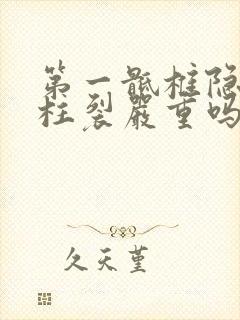 第一骶椎隐
柱裂严重吗
久天堇